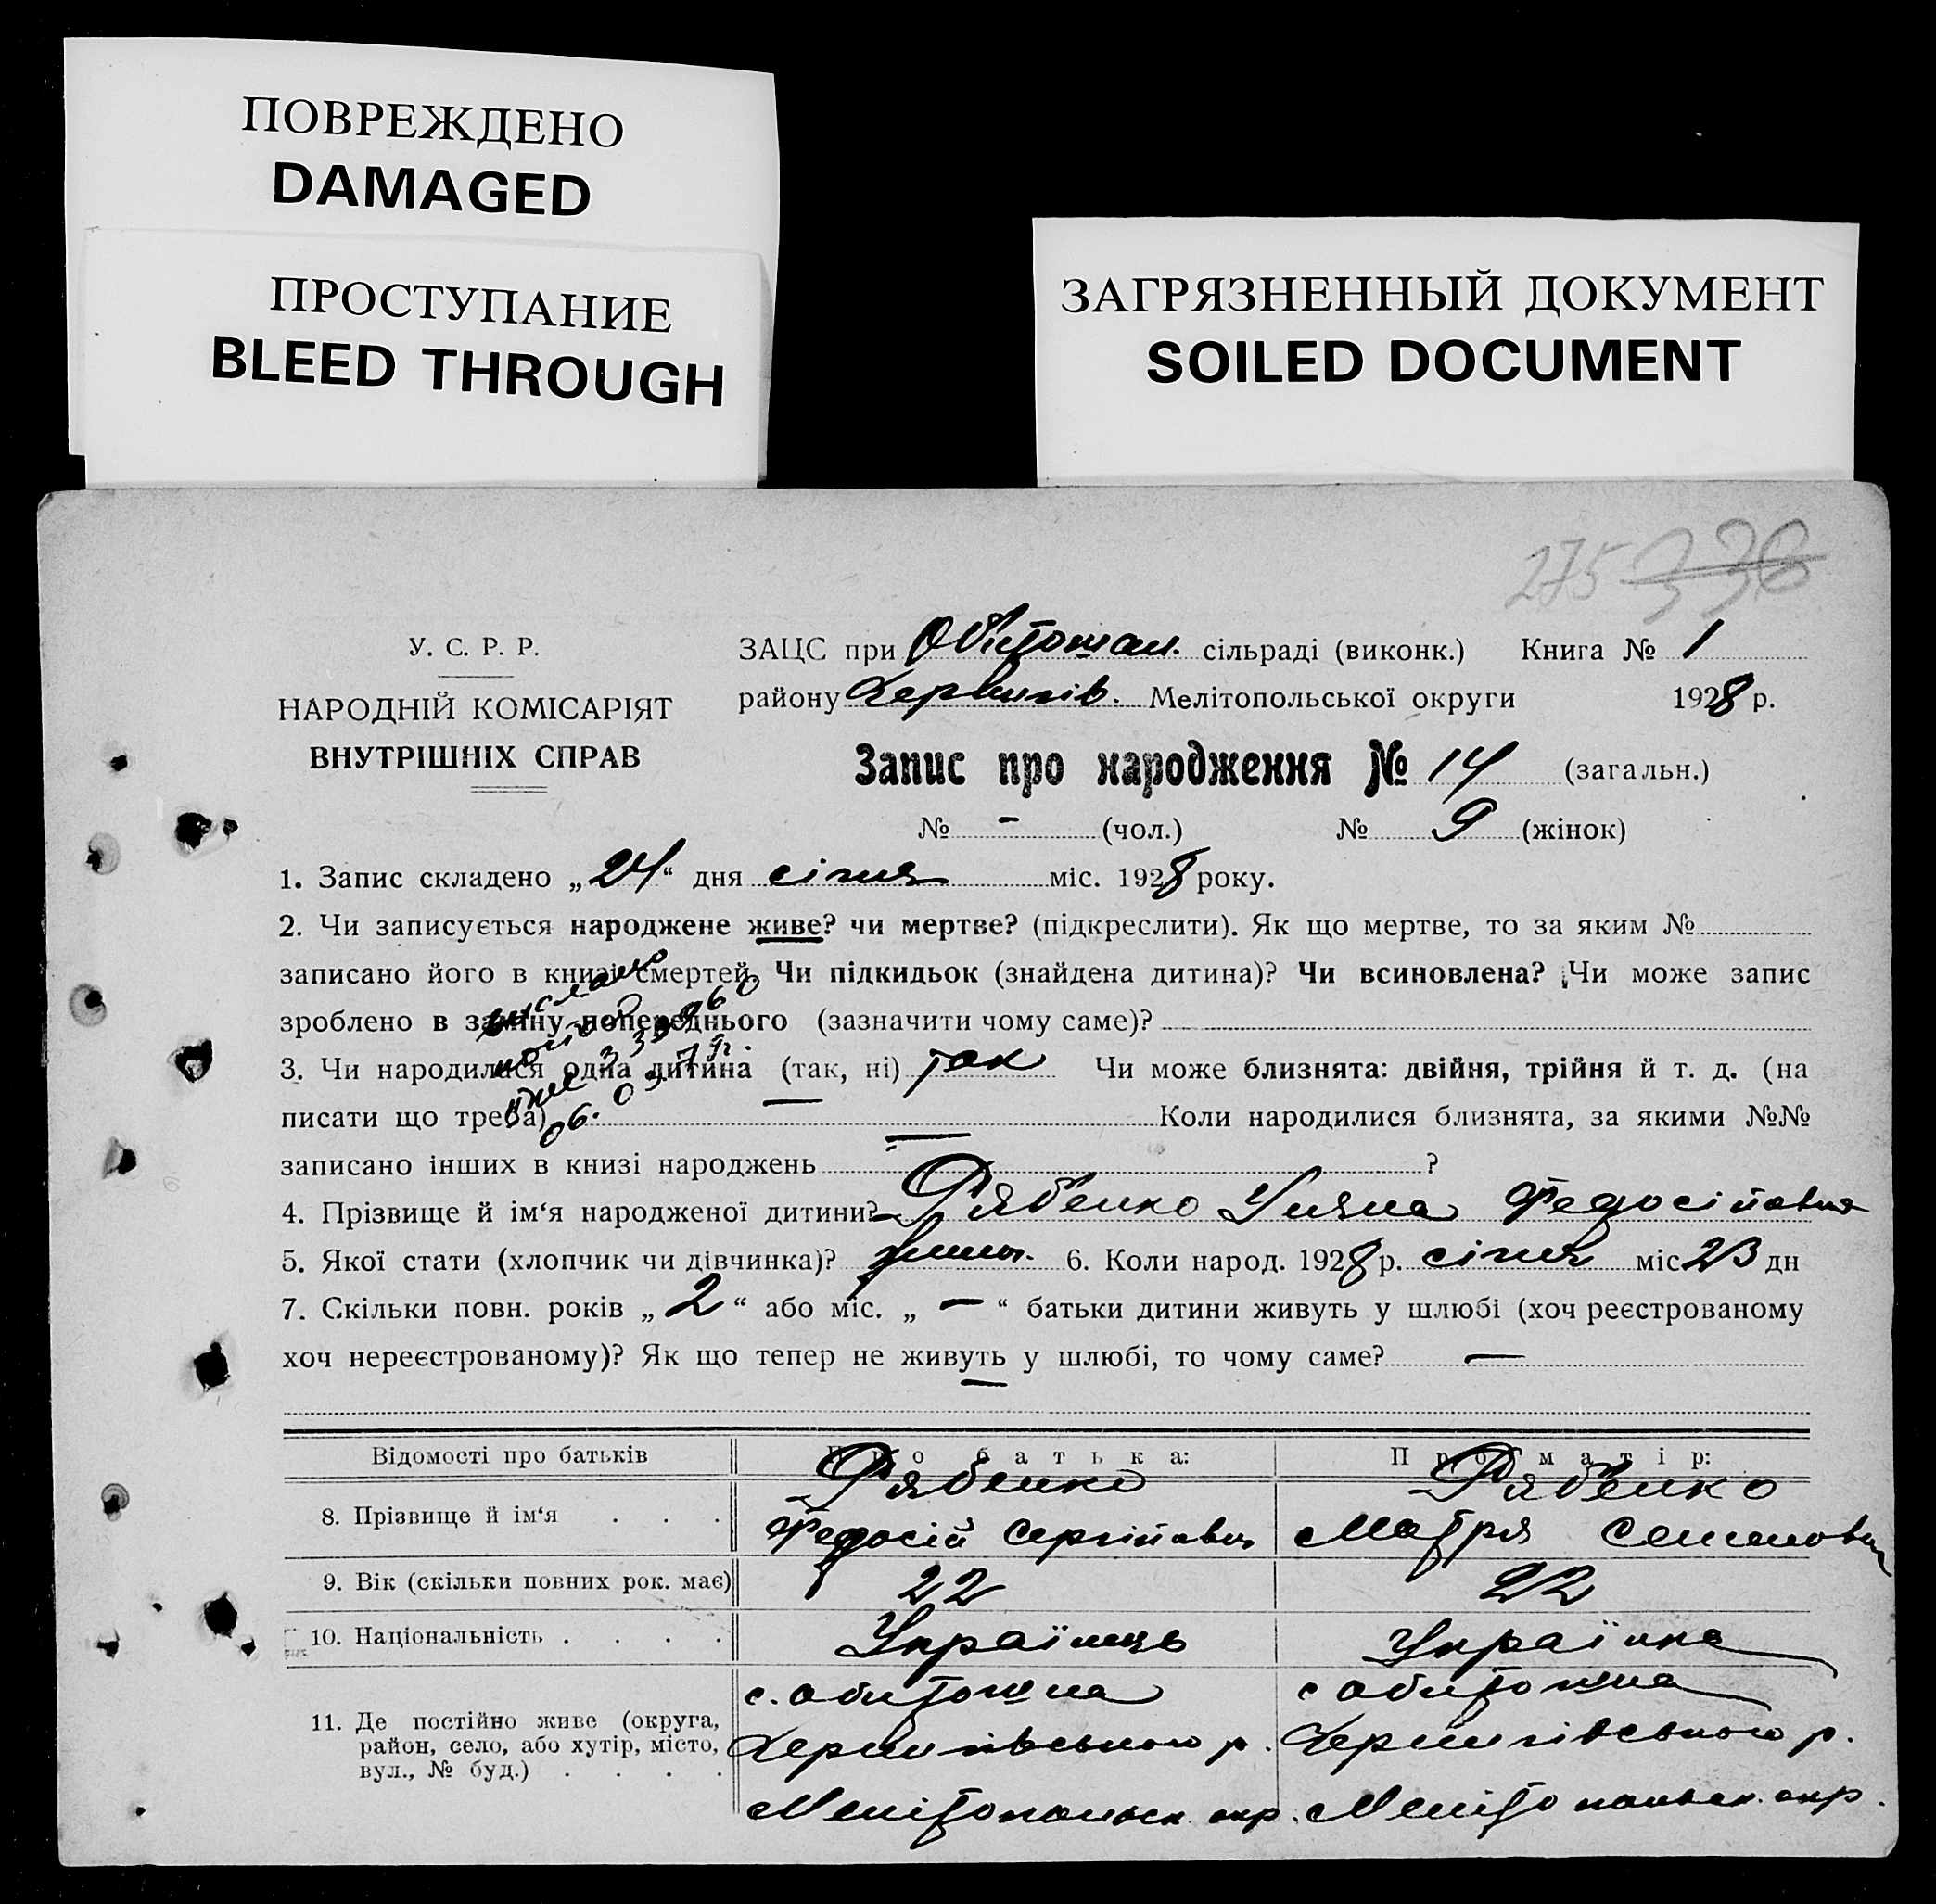 ПОВРЕЖДЕНО
DAMAGED
ПРОСТУПАНИЕ
BLEED THROUGH
ЗАГРЯЗНЕННЫЙ ДОКУМЕНТ
SOILED DOCUMENT
275 336
У. С. Р. Р.
НАРОДНІЙ КОМІСАРІЯТ
ВНУТРІШНІХ СПРАВ
ЗАЦС при Обітошан. сільраді (виконк.) Книга № 1
району Чернигів. Мелітопольської округи 1928 р.
Запис про народження № 14 (загальн.)
№ - (чол.) № 9 (жінок)
1. Запис складено „24“ дня січня міс. 1928 року.
2. Чи записується народжене живе? чи мертве? (підкреслити). Як що мертве, то за яким №
записано його в книзі смертей. Чи підкидьок (знайдена дитина)? Чи всиновлена? Чи може запис
зроблено в заміну попереднього (зазначити чому саме)?
3. Чи народилася одна дитина (так, ні) так Чи може близнята: двійня, трійня й т. д. (на
писати що треба) — Коли народилися близнята, за якими №№
записано інших в книзі народжень — ?
4. Прізвище й ім‘я народженої дитини? Рябенко Уляна Федосіївна
5. Якої стати (хлопчик чи дівчинка)? 6. Коли народ. 1928 р. січня міс 23 дн
7. Скільки повн. років „2“ або міс. „—“ батьки дитини живуть у шлюбі (хоч реєстрованому
хоч нереєстрованому)? Як що тепер не живуть у шлюбі, то чому саме? —
Відомості про батьків Про батька: Про матір:
8. Прізвище й ім‘я . . . Рябенко Рябенко
Федосій Сергійович Мотря Семеновна
9. Вік (скільки повних рок. має) 22 22
10. Національність . . . . Українець Українка
11. Де постійно живе (округа, район, село, або хутір, місто, вул., № буд.) . . . .
с. Обитошна с Обитошна
Чернигівського р. Чернигівського р.
Мелітопольск. окр. Мелітопольск. окр.